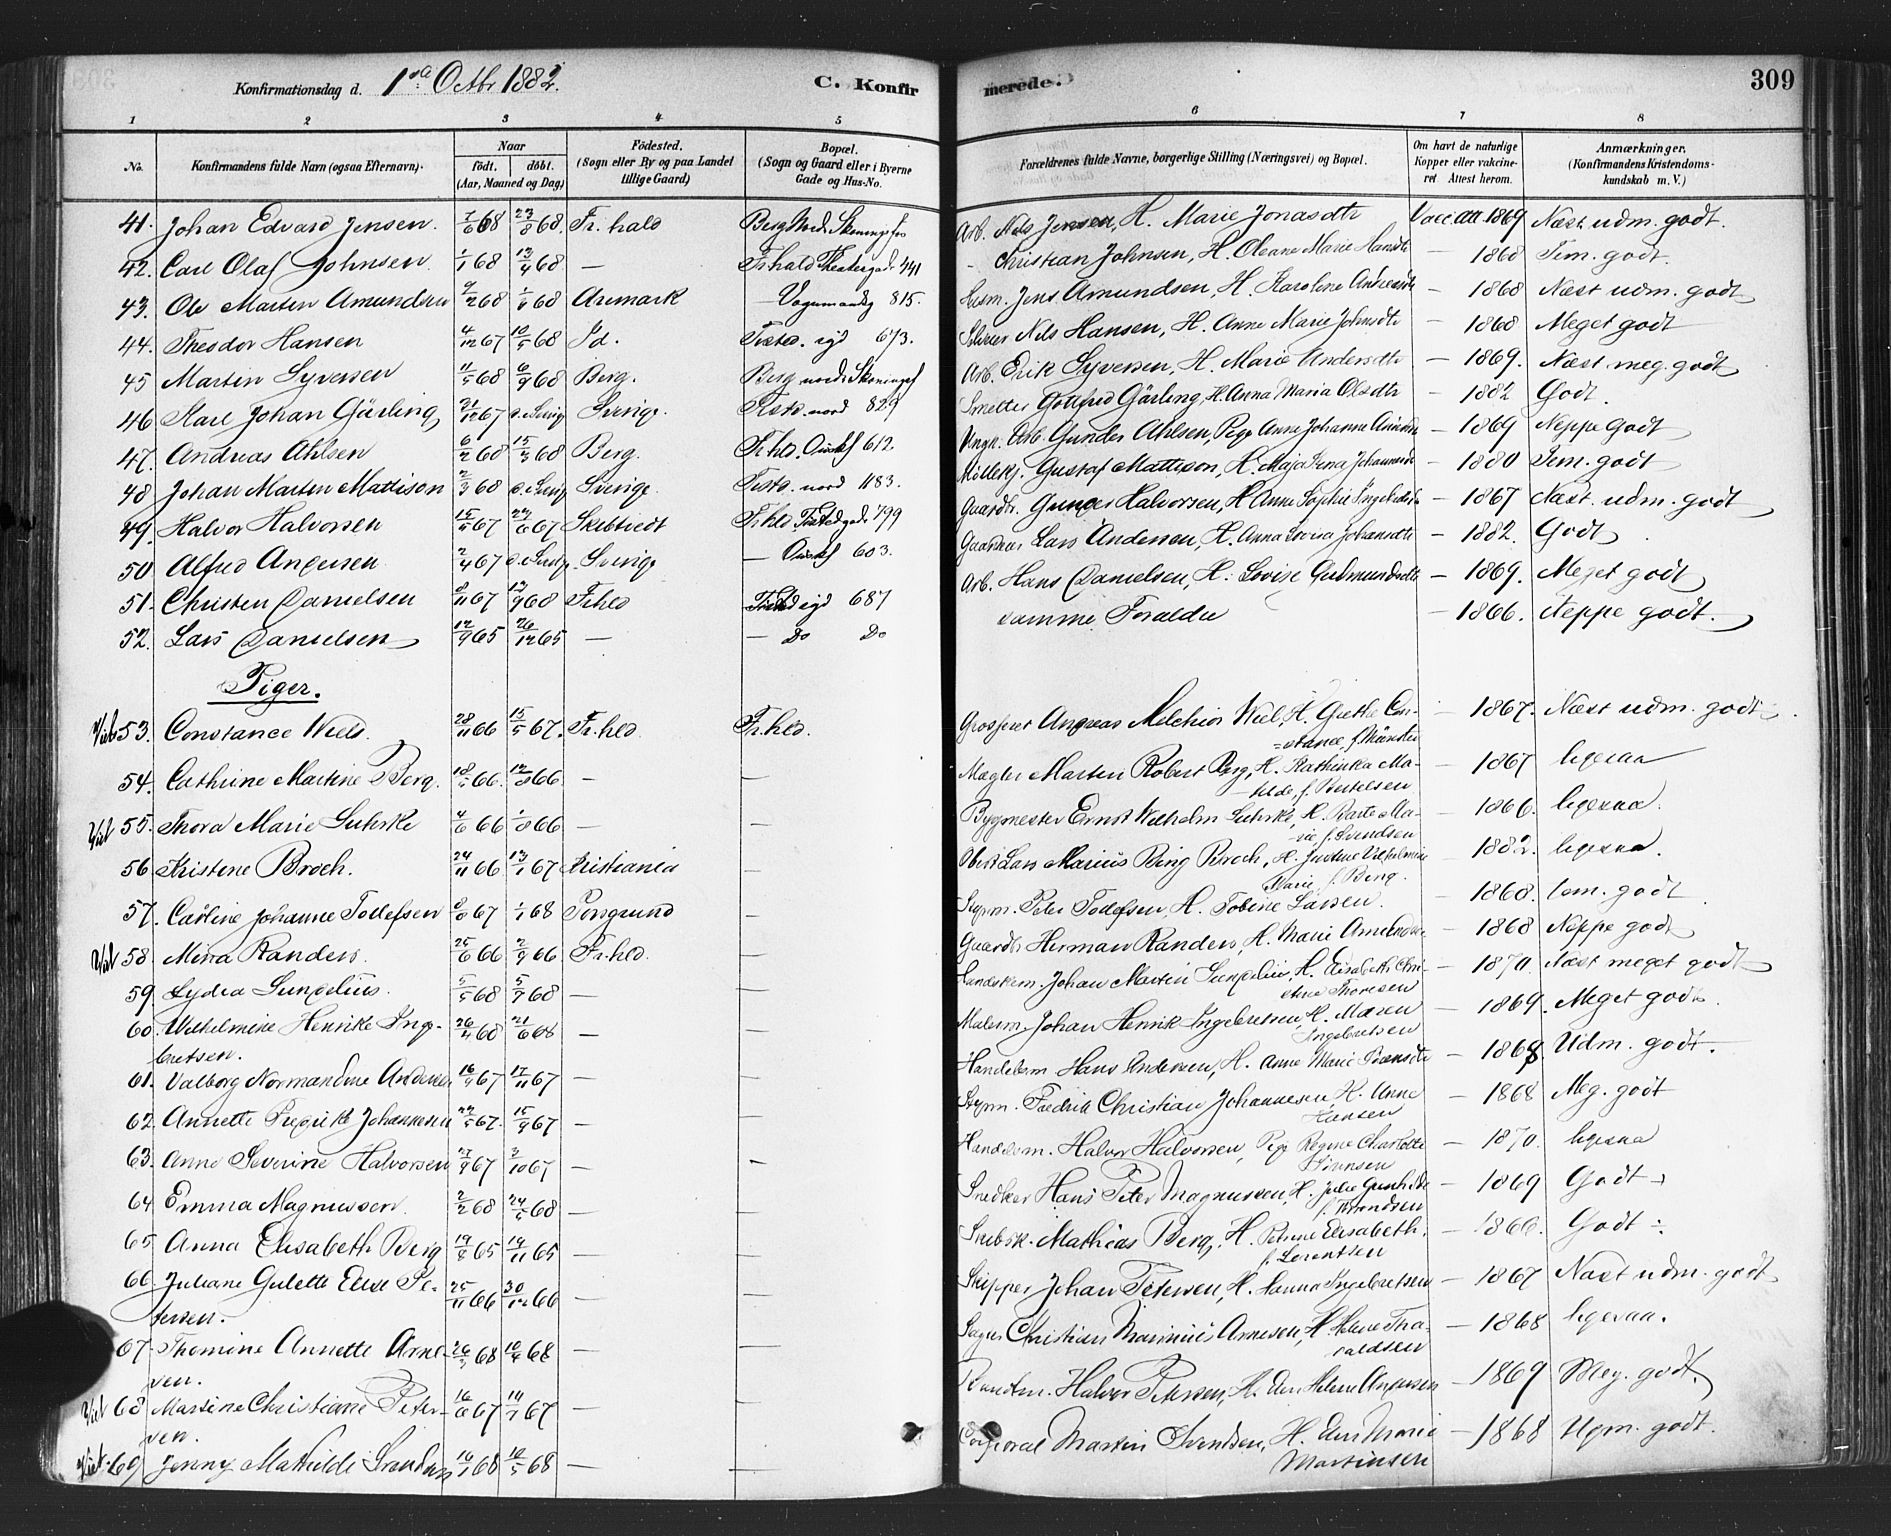 Konfirmationsdag d. 1ste Octbr 1882. C. Konfir merede. 309
1 2 3 4 5 6 7 8
No. Konfirmandens fulde Navn (ogsaa Efternavn). Naar födt. döbt. (Aar, Maaned og Dag) Födested. (Sogn eller By og paa Landet tillige Gaard) Bopæl. (Sogn og Gaard eller i Byerne Gade og Hus-No. Forældrenes fulde Navne, borgerlige Stilling (Næringsvei) og Bopæl. Om havt de naturlige Kopper eller vakcineret. Attest herom. Anmærkninger. (Konfirmandens Kristendomskundskab m. V.)
41. Johan Edvard Jensen. 7/6 68 23/8 68. Fr.hald Berg Arb. Nils Jensen, H. Marie Jonasdtr Vacc.att 1869 Næst udm. godt.
42. Carl Olaf Johnsen 1/1 68 13/4 68 — Frhald Theatergad 441 - Christian Johnsen, H. Oleane Marie Hansdtr — 1868 Tem. godt.
43. Ole Martin Amundsen 9/2 68 1/6 68 Aremark — 815. Husm. Jens Amundsen, H. Karoline Andersdtr — 1868 Næst udm. godt
44. Theodor Hansen 4/12 67 10/5 68 Id. Tisted. syd 673. Nils Hansen, H. Anne Marie Johnsdtr — 1868 Meget godt
45 Martin Syversen 11/5 68 6/9 68 Berg. Berg nordr Arb. Erik Syversen, H. Marie Andersdtr — 1869. Næst meg. godt
46 Karl Johan Gärling 21/12 67 d. i Sverig Sverige. Tisted. nord 829 Smelter Gottfred Gärling, H. Anna Maria Olsdtr — 1882 Godt.
47. Andreas Ahlsen 6/2 68 15/3 68 Berg. Fr.hld. 612 Ungk. Arb. Gunder Ahlsen, Pige Anne Johanne — 1869 Neppe godt
48 Johan Martin Mattison 2/3 68 d. i Sverig Sverige. Tisto. nord 1183. Møllekj. Gustaf Mattison, H. Maja — 1880 Tem. godt
49. Halvor Halvorsen 15/5 67 67 Skibtvedt Fr.hld Tistedgad. 799 Gaardbr. Gunder Halvorsen, H. Anne Sophie Ingebretsdtr — 1867 Næst. udm. godt
50 Alfred Andersen 2/4 67 d. i Sverig. Sverige — 603. Lars Andersen, H. Anna Lovisa Johansdtr — 1882. Godt
51. Christen Danielsen 8/11 67 13/9 68 Fr.hld Tisted syd 687 Arb. Hans Danielsen, H. Lovise Gudmundsdtr — 1869. Meget godt
52. Lars Danielsen 12/9 65 26/12 65 — — Do Do samme Foraldre — 1866. Neppe godt.
Piger.
53. Constance Wiels. 28/11 66 15/5 67. Fr.hld. Fr.hld. Grosserer Andreas Melchior Wiel, H. Grethe Con- — 1867. Næst udm. godt.
=stance, f. Münster
54. Cathrine Martine Berg. 66. 66 — — Mægler Martin Robert Berg, H. Kathinka Ma- — 1867 ligesaa
tilde, f. Bertelsen
Viel 55. Thora Marie Luhrke 4/6 66 1/8 66 — — Bygmester Ernst Wilhelm Luhrke, H. Marie — 1866. ligesaa.
f. Svendsen
56 Kristene Broch. 24/11 66 13/1 67 Kristiania — Lars Marius Ring Broch, H. Justine Vilhelmine — 1882. ligesaa.
Marie f. Berg.
57. Carline Johanne Todefsen 67 1/1 68 Porsgrund — Styrm. Peter Todefsen, H. Tobine Larsen. — 1868. tem. godt
58. Mina Randers. 25/6 66 2/9 66 Fr.hld. — Gaardbr. Herman Randers, H. Marie — 1868 Neppe godt
59. Lydia Lundelius. 5/5 68 5/7 68 — — Handskem. Johan Martin Lundelius, H. Elisabeth Chri- — 1870. Næst meget godt
stine Thoresen
60. Wilhelmine Henrike Inge- 26/4 68 21/6 68 — — Malerm. Johan Henrik Ingebretsen, H. — 1869. Meget godt.
bretsen. Ingebretsen
61. Valborg Normandine Andersen 16/9 67 17/11 67 — — Handelsm. Hans Andersen, H. Anne Marie — 1868 Udm. godt.
62. Annette Fredrikke Johannesen 67. 15/9 67 — — Styrm. Fredrik Christian Johannesen H. Anne — 1868 Meg. godt
Hansen
63. Anne Severine Halvorsen 67 3/10 67 — — Handelsm. Halvor Halvorsen, Pige Regine Charlotte — 1870. ligesaa
Sörensen
64 Emma Magnussen. 2/2 68 24/5 68 — — Snedker Hans Peter Magnussen, H. Julie Gunhilde — 1869 Godt
65 Anna Elisabeth Berg 19/8 65 19/11 65 — — Mathias Berg, H. Petrine Elisabeth. — 1866. Godt ÷
f. Lorentsen
66. Juliane Gulette Elise Pe- 25/11 66 30/12 66 — — Skipper Johan Petersen, H. Hanna Ingebretsen — 1867 Næst udm. godt
tersen.
67. Thomine Annette Arne- 68 68 — — Christian Marinius Arnesen, H. Helene Tho- — 1868 ligesaa.
sen. raldsen
68 Martine Christiane Peter- 16/6 67 14/7 67 — — Halvor Petersen, H. Helene Andersen — 1869 Meg. godt.
sen.
Viel. 69 Jenny Mathilde Svendsen 16/1 68 10/5 68 — — Corporal Martin Svendsen, H. Marie — 1868 Udm. godt.
Martinsen